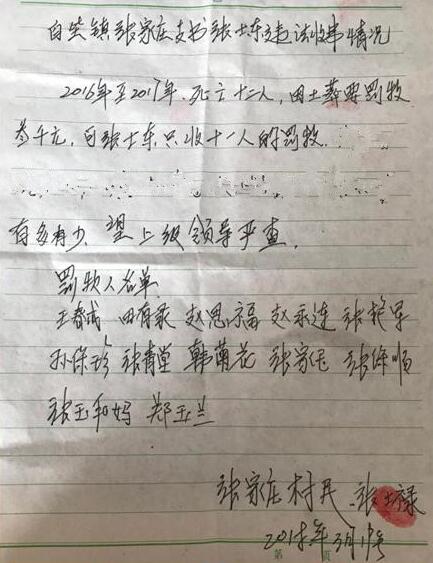 自奂镇张家庄支书张士东违法收费情况
2016年至2017年.死亡十二人,因土葬要罚款
叁千元,可张士东只收十一人的罚款.
有多有少.望上级领导严查.
罚款人名单
王春成 田有录 赵思福 赵永连 张艳军
孙保珍 张青堂 韩菊花 张家伍 张保顺
张玉和妈 郑玉兰
张家庄村民 张士禄
2018年3月19号
第 页